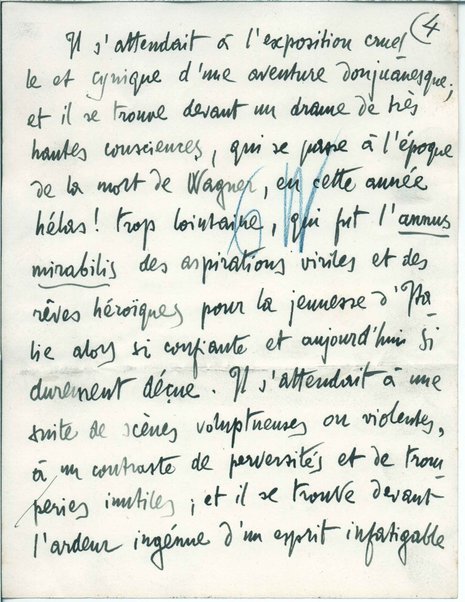 4
Il s'attendait à l'exposition cruel
le et cynique d'une aventure donjuanesque;
et il se trouve devant un drame de très
hautes consciences, qui se passe à l'époque
de la mort de Wagner, en cette année
hélas! trop lointaine, qui fut l'annus
mirabilis des aspirations viriles et des
rêves héroïques pour la jeunesse d'Ita
lie alors si confiante et aujourd'hui si
durement déçue. Il s'attendait à une
suite de scènes voluptueuses ou violentes,
à un contraste de perversités et de trom
peries inutiles; et il se trouve devant
l'ardeur ingénue d'un esprit infatigable